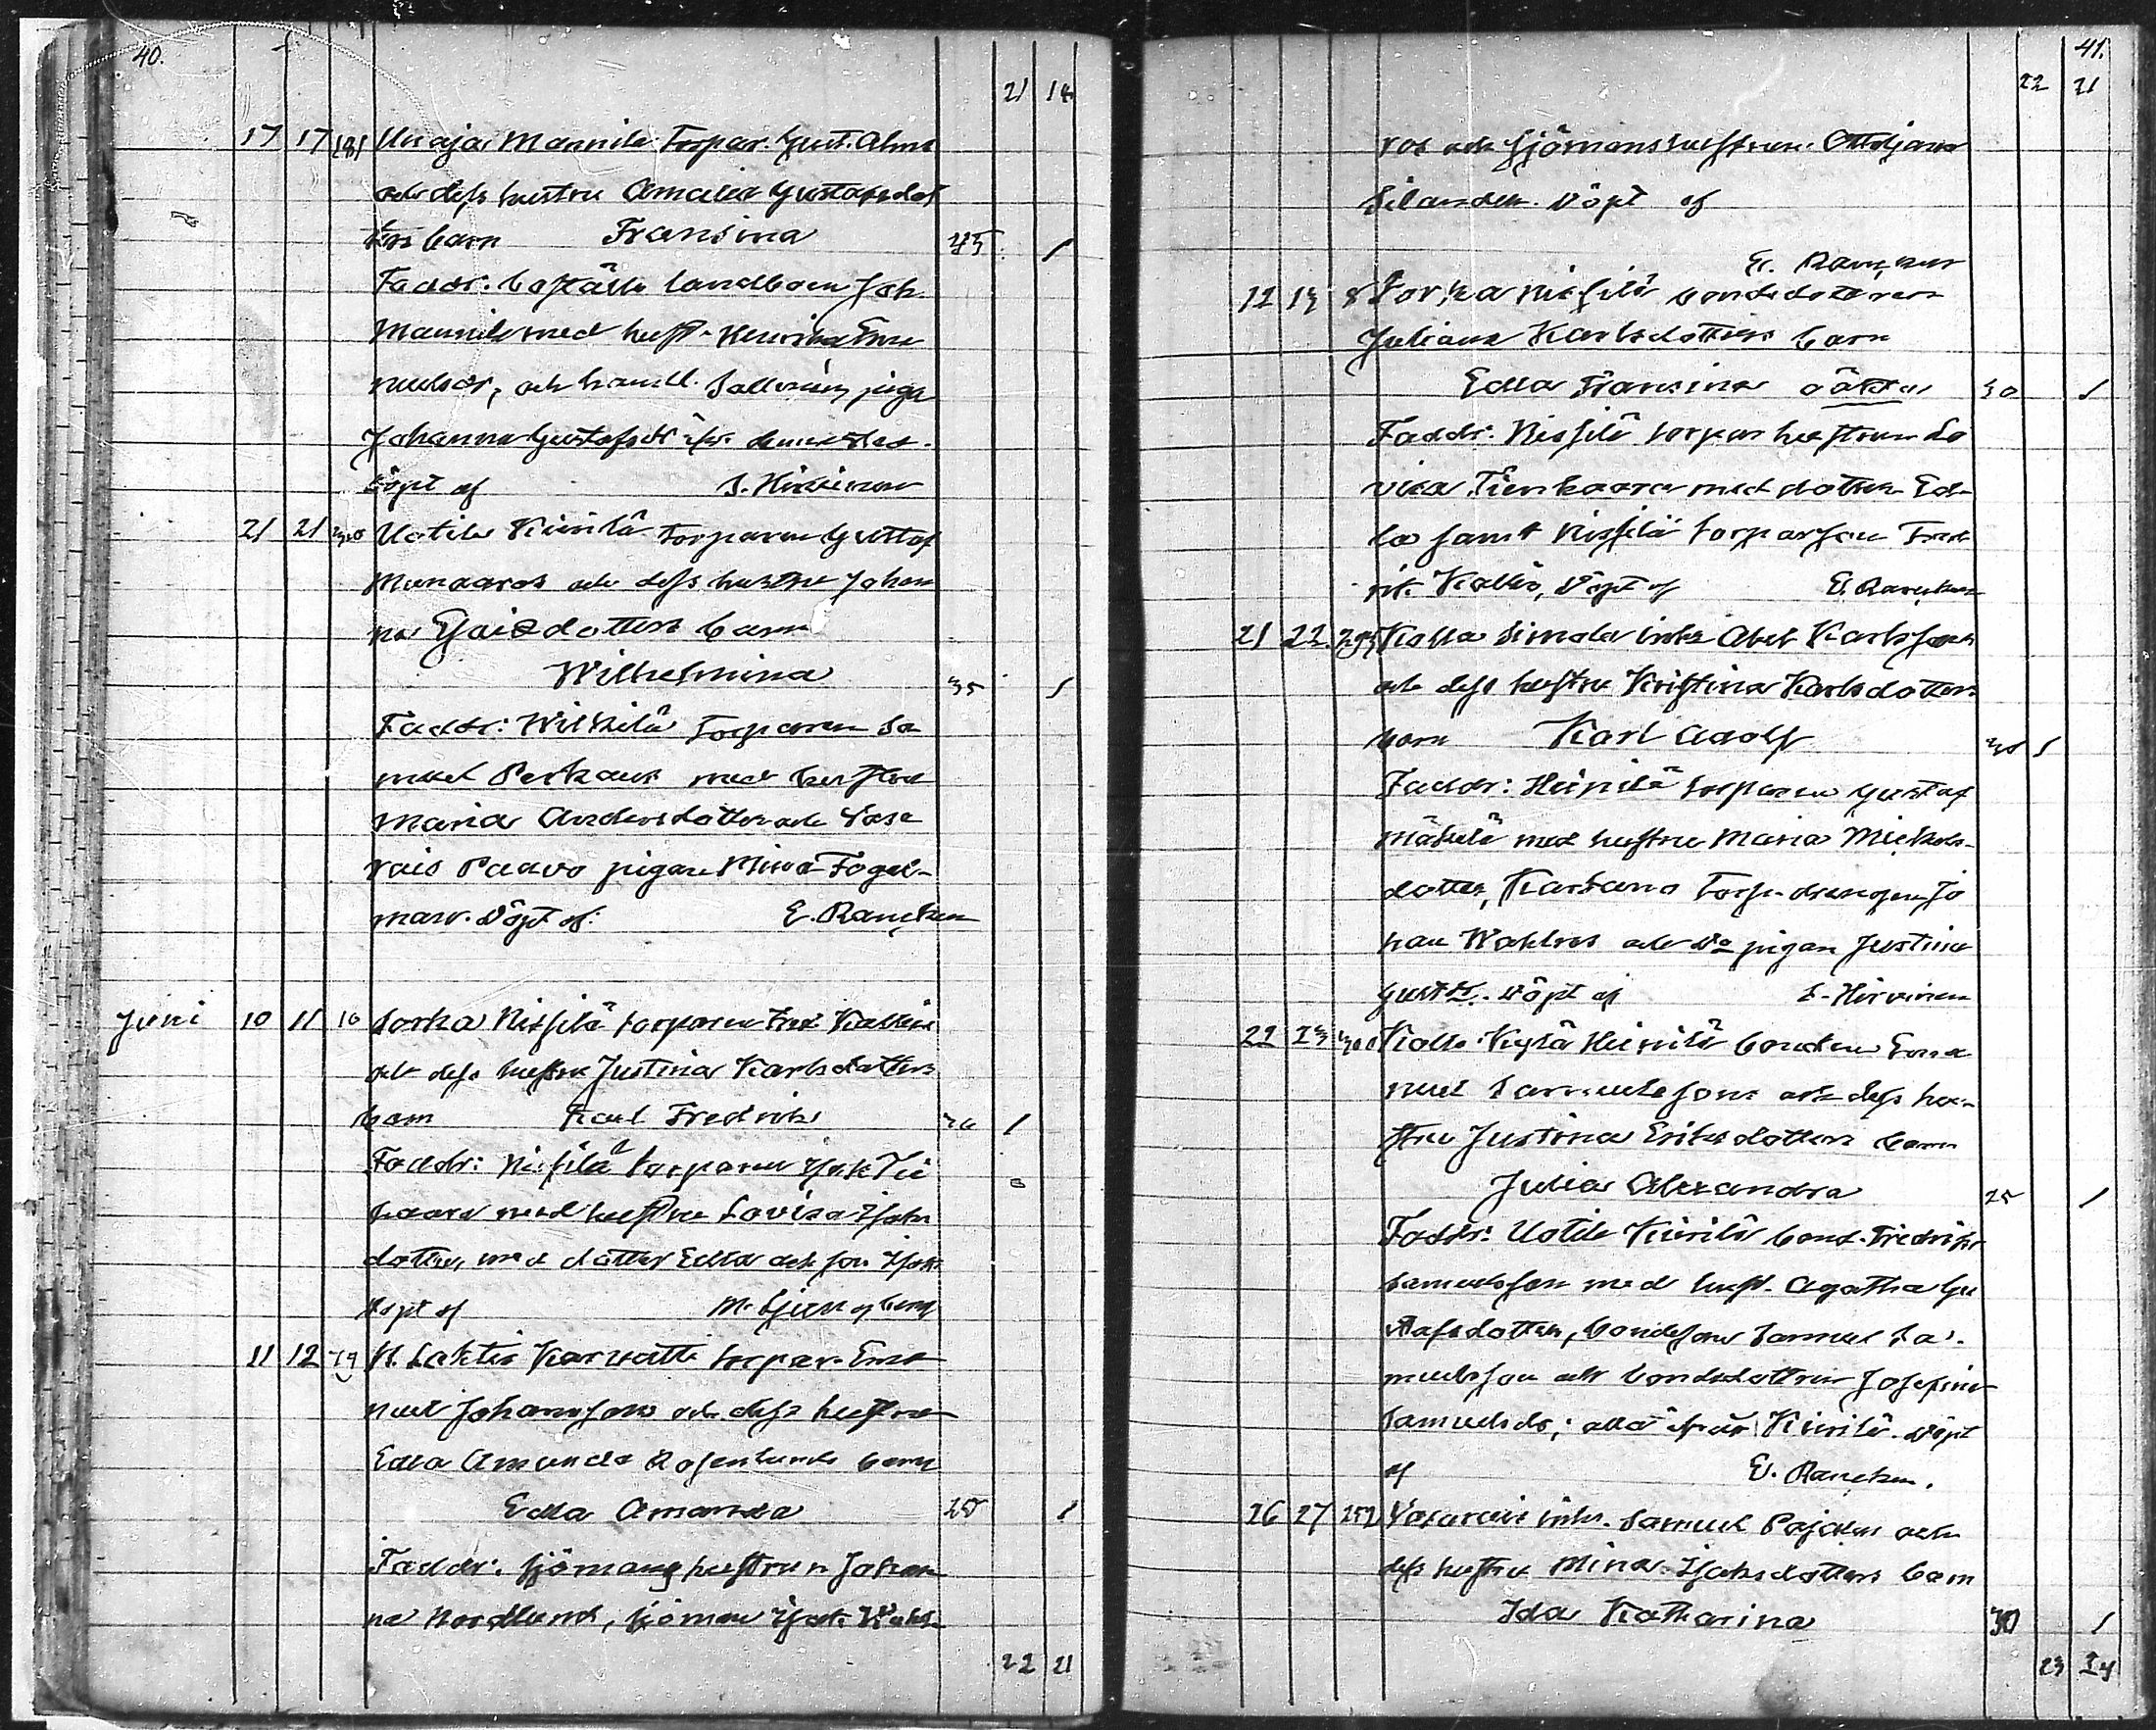 40.
21 14
17 17 181 Unaja Mannila Torpar. Gust. Alms
och dess hustru Amalia Gustafsdot
ters barn Fransina 45 1
Faddr: boställs landboen Joh.
Mannila med hust. Henrika Ema
nuelsdr, och pigan
Johanna Gustafsdr
Döpt af S. Hirvinen
21 21 Uotila Kiirilä torparen Gustaf
Munaaros och dess hustru Johan
na dotters barn
Wilhelmina 35 1
Faddr: torparen Sa
muel med hustru
Maria Andersdotter och Vasa
rais Paavo pigan Mina Fogel-
man. Döpt af: E. Rancken
Juni 10 11 16 Sorka Nissilä torparen Fred. Kallio
och dess hustru Justina Karlsdotters
barn Karl Fredrik 1
Faddr: Nissilä torparen Isak Tie
kaara med hustru Lovisa Isaks
dotter, med dotter Edla och son Isak
Döpt af M. Ljungberg
11 12 79 N. Lahtis Karvatti torpar. Ema
nuel Johansson och dess hustru
Edla Amanda Rosenlunds barn
Edla Amanda 25 1
Faddr: sjömans hustrun Johan
na Nordlund, sjöman Isak Wahl-
22 21
41.
22 21
ros och sjömanshustrun Ottiljana
Silander. Döpt af
E. Rancken
12 13 8 Sorka Nissilä bondedottren
Juliana Karlsdotters barn
Edla Fransina oäkta 30 1
Faddr: Nissilä torpar hustrun Lo
visa Tienkaara med dotter Ed-
la samt Nissilä torparson Fred-
rik Kallio, Döpt af E. Rancken
21 22 Kolla Simola inhs Abel Karlsson
och dess hustru Kristina Karlsdotters
barn Karl Adolf 1
Faddr: Heinilä torparen Gustaf
Mäkelä med hustru Maria Mickels-
dotter, torp. drängen Jo
han Wahlros och do pigan Justina
Gustdr. Döpt af S. Hirvinen
22 23 Kolla Kylä Heinilä bonden Ema
nuel Samuelsson och dess hu-
stru Justina Eriksdotters barn
Julia Alexandra 25 1
Faddr: Uotila Kiirilä bond. Fredrik
Samuelsson med hust. Agatha Gu
stafsdotter, bondeson Samuel Sa-
muelsson och bondedottren Josefina
Samuelsdr; alla ifrån Kiirilä. Döpt
af E. Rancken.
26 27 252 Vasarais inhs. Samuel Pajalin och
dess hustru Mina Isaksdotters barn
Ida Katharina 30 1
23 24